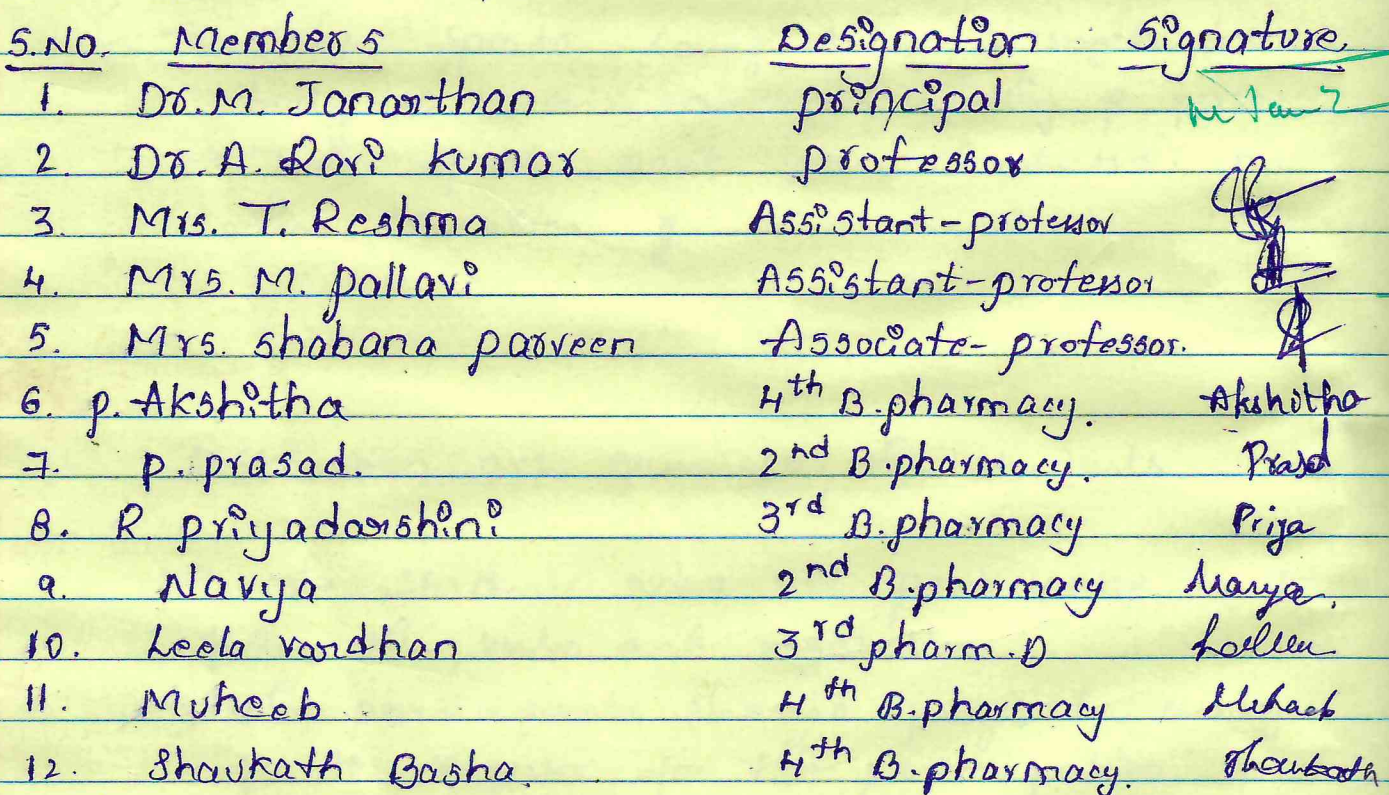 S.No. Members Designation Signature
1. Dr. M. Janarthan principal
2. Dr. A. Ravi kumar professor
3. Mrs. T. Reshma Assistant-professor
4. Mrs. M. pallavi Assistant-professor
5. Mrs. shabana parveen Associate-professor.
6. p. Akshitha 4th B.pharmacy. Akshitha
7. p. prasad. 2nd B.pharmacy. Prasd
8. R. priyadarshini 3rd B.pharmacy Priya
9. Navya 2nd B.pharmacy Navya.
10. Leela vardhan 3rd pharm.D
11. Muheeb 4th B.pharmacy
12. Shaukath Basha. 4th B.pharmacy. Shaukath